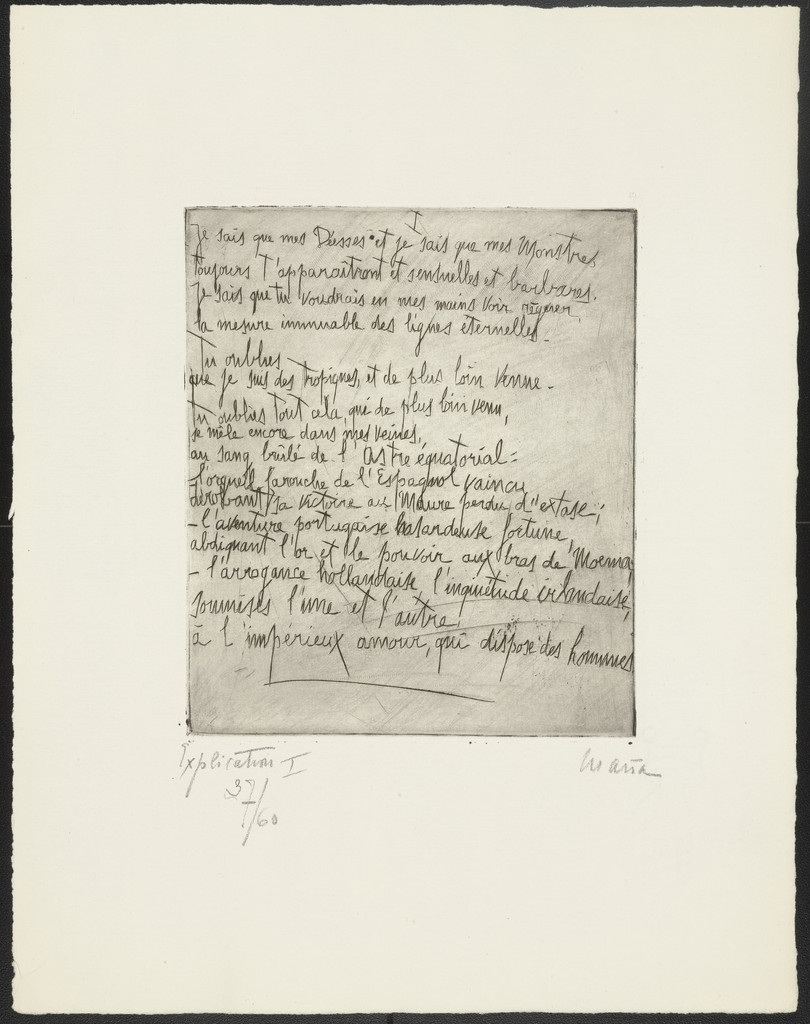 I
Je sais que mes Déesses et je sais que mes Monstres
toujours t'apparaîtront et sensuelles et barbares.
Je sais que tu voudrais en mes mains voir régner,
la mesure immuable des lignes éternelles.
Tu oublies
que je suis des tropiques, et de plus loin venue.
Tu oublies tout cela, qui de plus loin venu,
se mêle encore dans mes veines,
au sang brûlé de l'Astre équatorial:
- l'orgueil farouche de l'Espagnol vaincu
dérobant sa victoire au Maure perdu d'extase;
- l'aventure portugaise hasardeuse fortune,
abdiquant l'or et le pouvoir aux bras de Moema;
- l'arrogance hollandaise, l'inquiétude irlandaise,
soumises l'une et l'autre,
à l'impérieux amour, qui dispose des hommes
Explication I
37/60
Maria